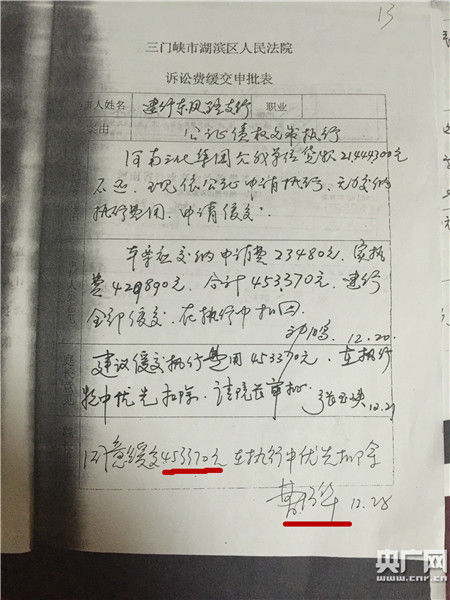 13
三门峡市湖滨区人民法院
诉讼费缓交申批表
事人姓名 建行东风路支行 职业
案由 公证债权文书执行
河南三化集团欠我单位贷款21444300元
不还,现依公证申请执行,无力交纳
执行费用,申请缓交.
本案应交纳申请费23480元,实执
费429890元,合计453370元,建行
全部缓交,在执行中扣回.
12.20.
建议缓交执行费用453370元,在执行
款中优先扣除,请院长审批.
12.21
同意缓交453370元在执行中优先扣除
12.28
央广网
www.cnr.cn